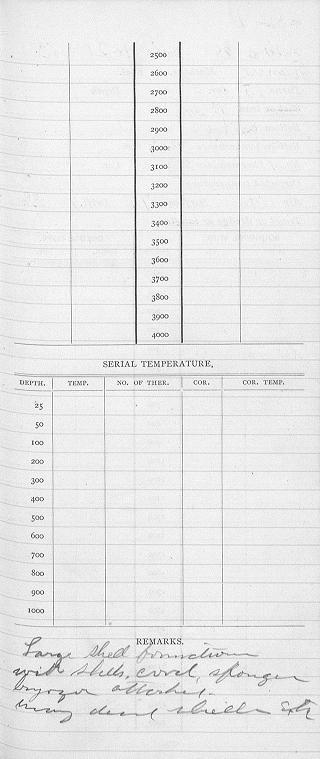 2500
2600
2700
2800
2900
3000
3100
3200
3300
3400
3500
3600
3700
3800
3900
4000
SERIAL TEMPERATURE.
DEPTH. TEMP. NO. OF THER. COR. COR. TEMP.
25
50
100
200
300
400
500
600
700
800
900
1000
REMARKS.
Large shell formations
with shells, coral, sponges
bryozoa attached.
Many dead shells etc